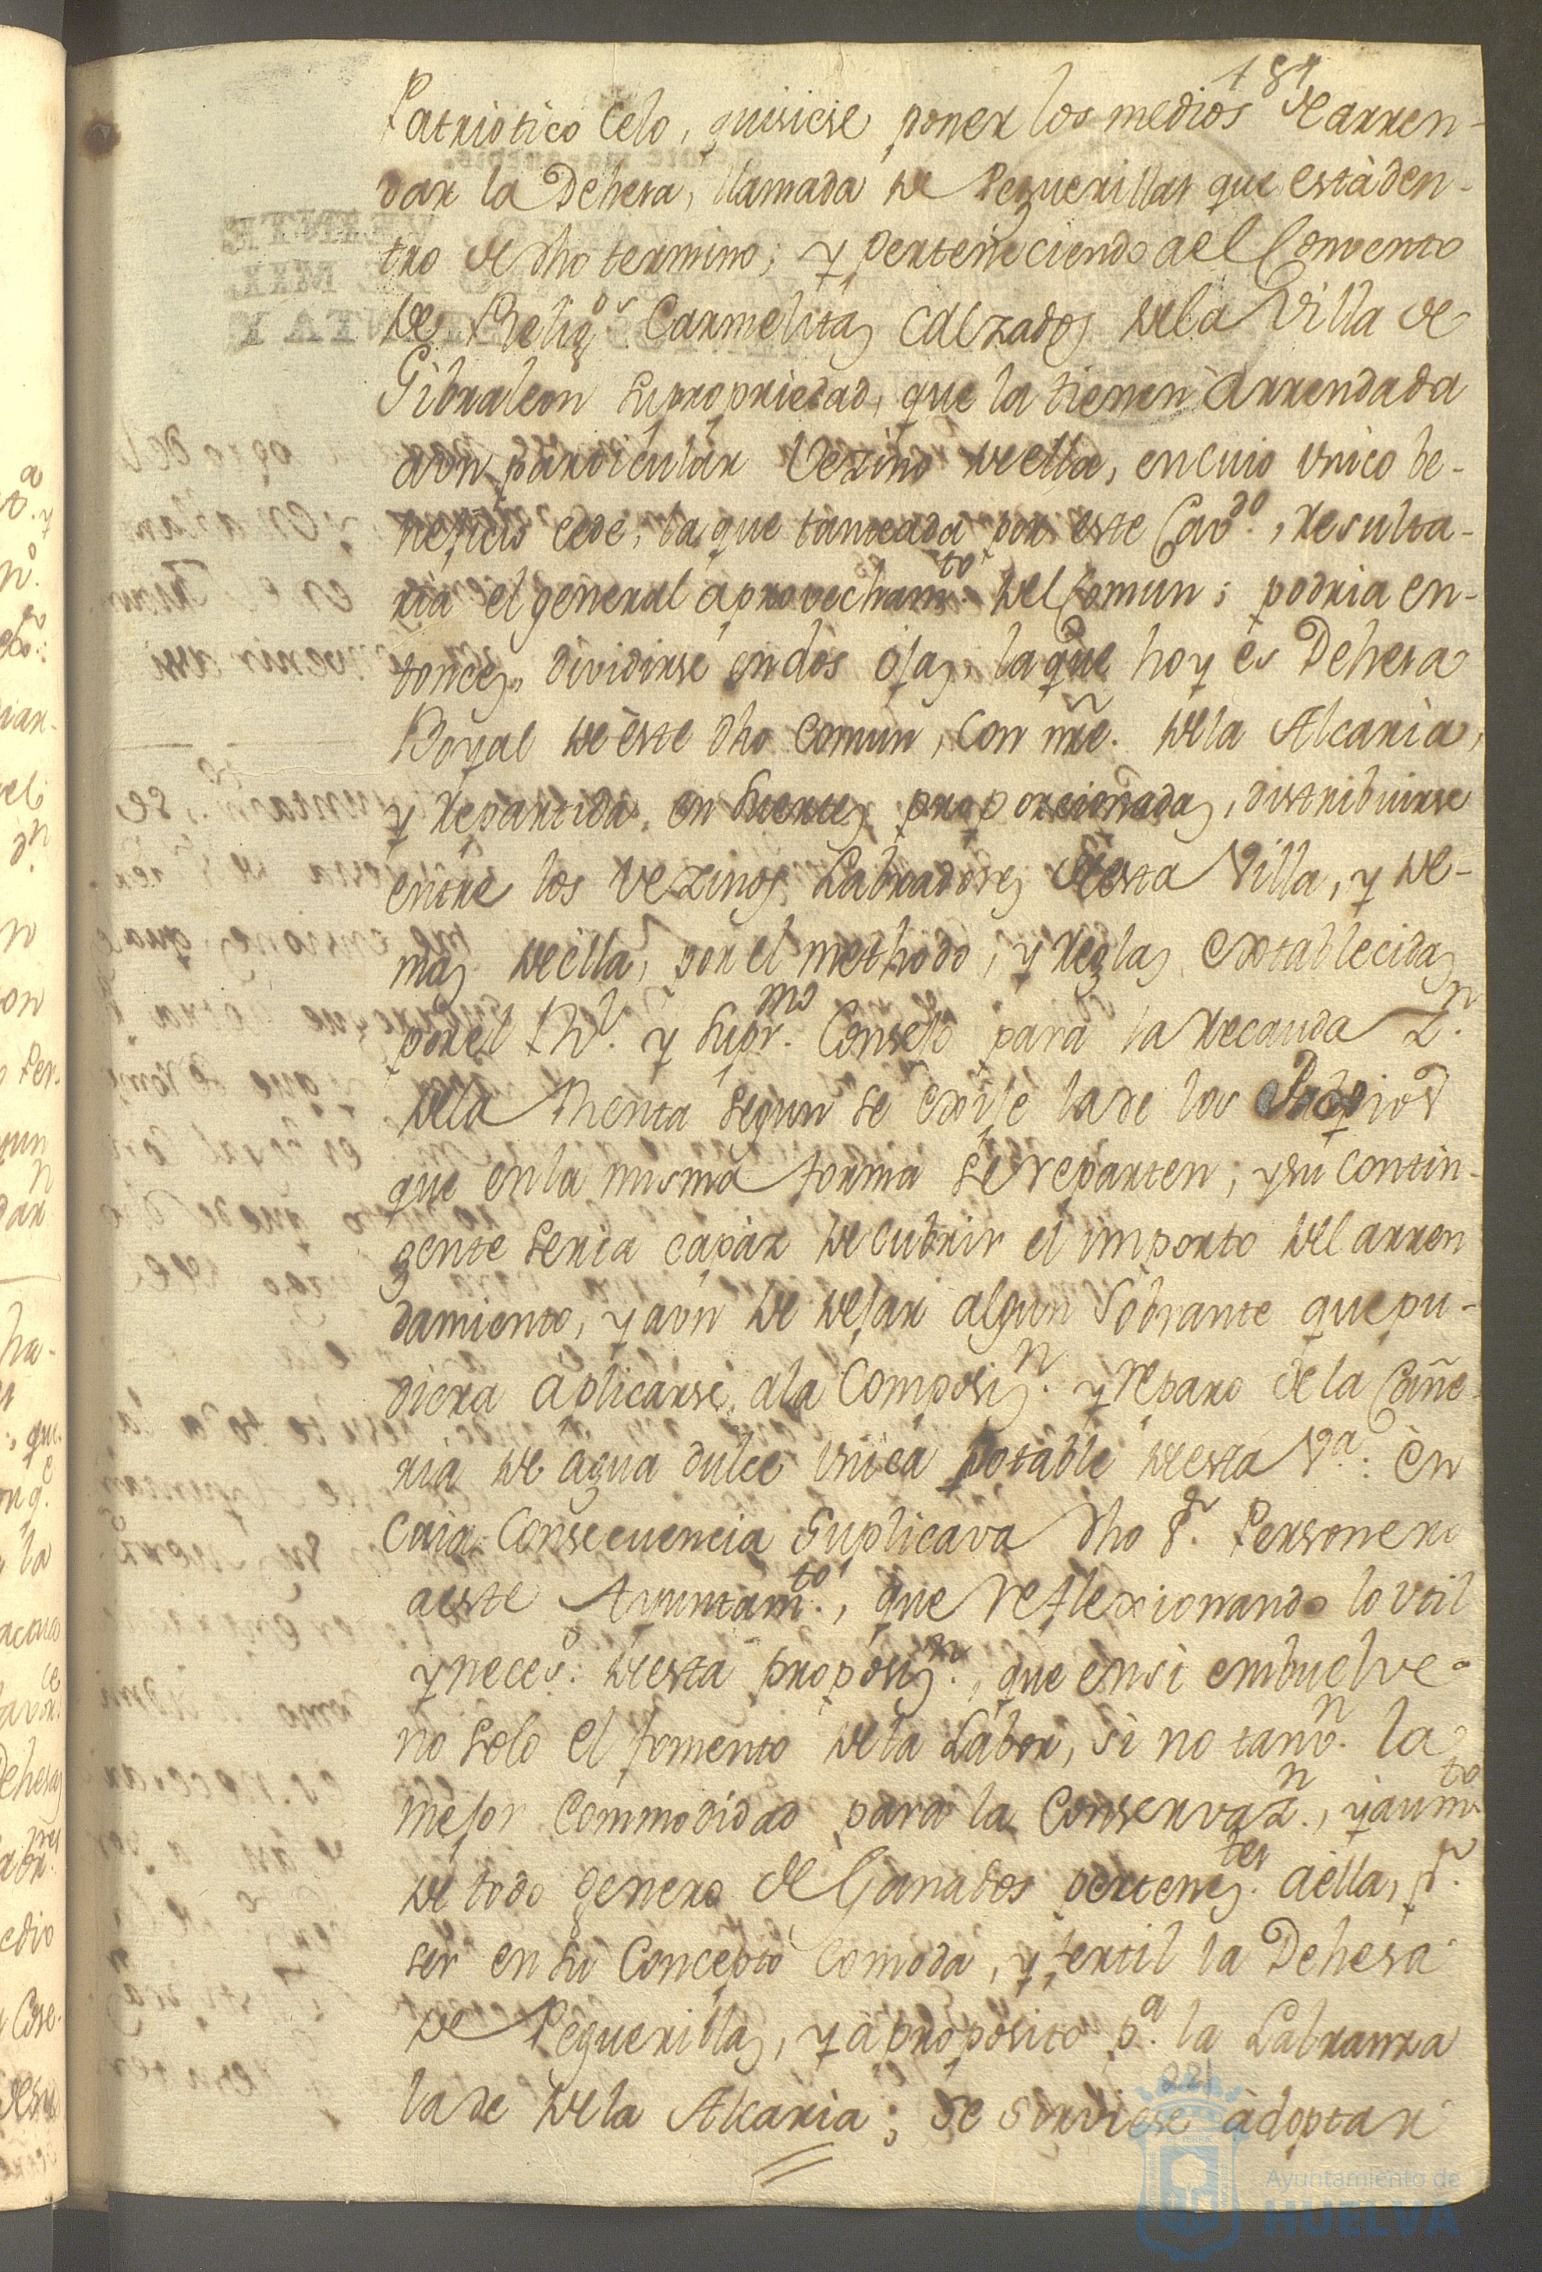 181
Patriotico Celo, quisiese poner los medios de arren-
dar la Dehesa, llamada de Peguerillas que està den-
tro de dho termino; y perteneciendo a el Convento
de Relig.os Carmelitas Calzados dela Villa de
Gibraleon su propriedad, que la tienen arrendada
aun particular Vezino de ella, en cuio unico be-
neficio cede, la que tanteada por este Cav.do, resulta-
ria el general aprovecham.to del Comun; podria en-
tonces, dividirse en dos ojas, la que hoy es Dehesa
Boyal de èste dho Comun, con nre. dela Alcaria,
y repartida, en suertes proporcionadas, distribuirse
entre los Vezinos Labradores de esta Villa, y de-
mas de ella, por el methodo, y reglas establecidas
por el Rl. y Supr.mo Consejo para la recaudaz.n
dela Renta segun se exije la de los Propios
que en la misma forma se reparten; y su contin-
gente seria capàz de cubrir el importo del arren
damiento, y aun de dejar algun Sobrante que pu-
diera àplicarse, ala Composiz.n y reparo de la Cañe-
ria de agua dulce unica potable de esta V.a: En
cuia Consecuencia Suplicava dho S.r Personero
a este Ayuntam.to, que reflexionando lo util
y neces.o de esta proposiz.n, que en si embuelve
no solo el fomento dela Labor, si no tanv.n la
mejor Commodidad para la Conservaz.n, y aum.to
de todo genero de Ganados pertenez.tes aella, p.r
ser en su Concepto Comoda, y fertil la Dehesa
de Peguerillas, y a proposito p.a la Labranza
la de dela Alcaria; se sirviese àdoptar
221
Ayuntamiento de
HUELVA